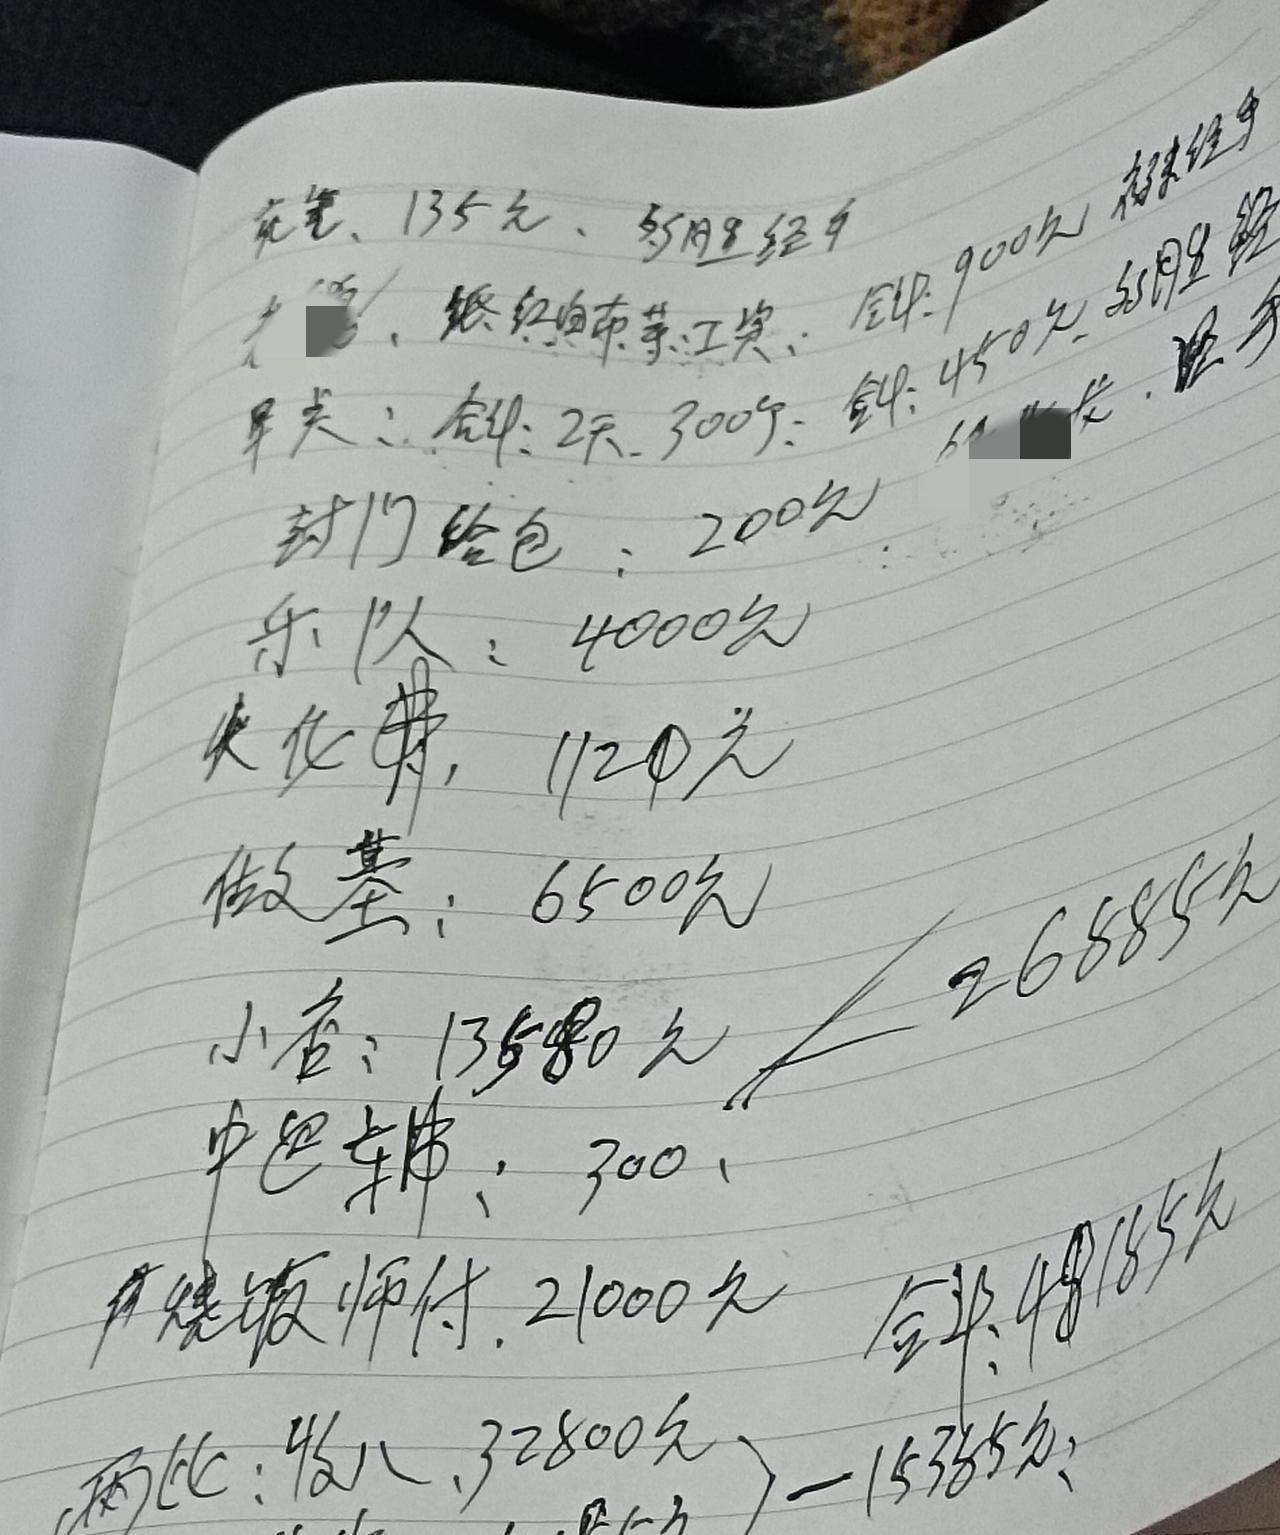 花笔、135元、经手
纸红白布等工资: 合计:900元 经手
早尖: 合计:2天、300个: 合计:450元 经手
封门给包:200元
乐队:4000元
火化费,1120元
做墓:6500元
小店:13580元
26885元
中巴车费:300、
烧饭师付.21000元 合计:48185元
两比:收入、32800元 —15385元: